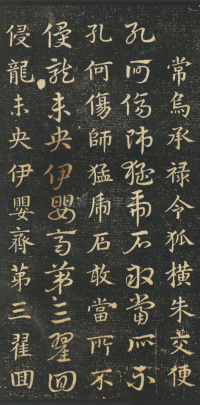 常烏承禄令狐橫朱交便
孔何傷師猛虎石敢當所不
孔何傷師猛虎石敢當所不
侵龍未央伊嬰齊第三翟回
侵龍未央伊嬰齊第三翟回